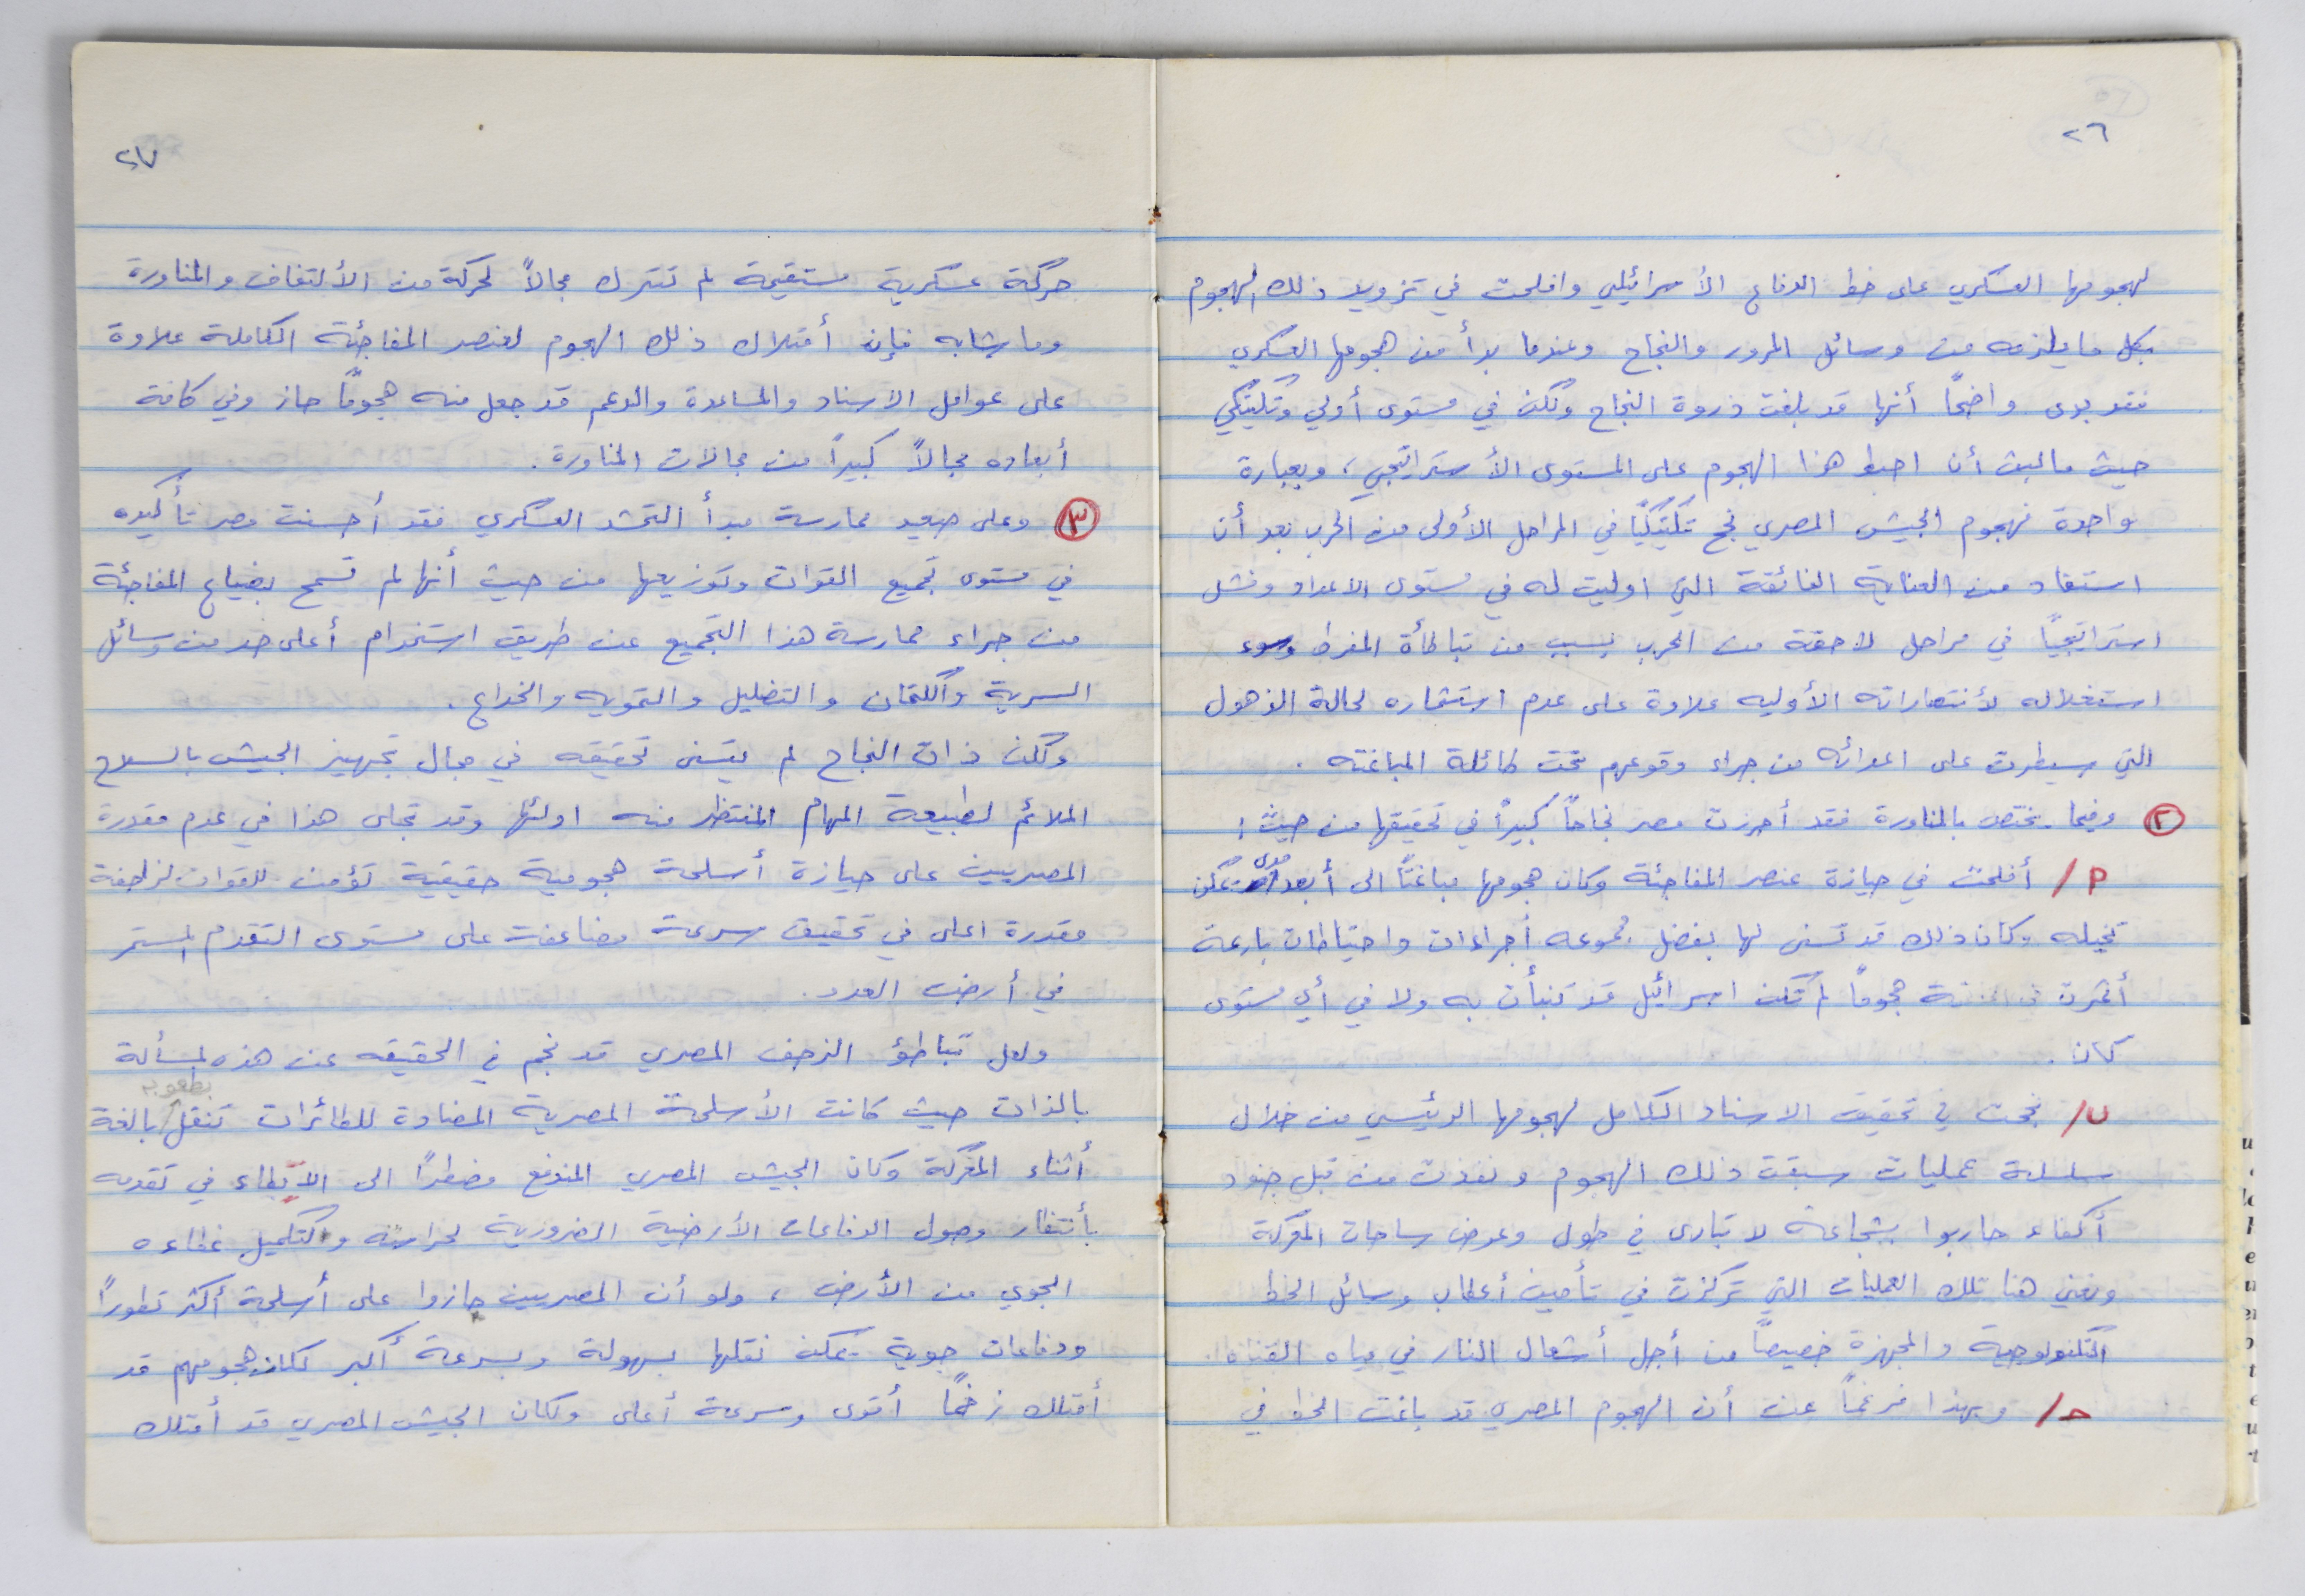 ٢٦
لهجومها العسكري على خط الدفاع الأسرائيلي وافلحت في تزويد ذلك الهجوم
بكل ما يلزمه من وسائل المرور والنجاح وعندما بدأ من هجومها العسكري
فقد بدى واضحاً أنها قد بلغت ذروة النجاح ولكن في مستوى أولي وتكتيكي
حيث ما لبث أن احبط هذا الهجوم على المستوى الأستراتيجي، وبعبارة
واحدة فهجوم الجيش المصري نجح تكتيكيًا في المراحل الأولى من الحرب بعد أن
استفاد من العناية الفائقة التي اوليت له في مستوى الاعداد وفشل
استراتيجيًا في مراحل لاحقة من الحرب بسبب من تباطأة المفرط وسوء
استغلاله لأنتصاراته الأوليه علاوة على عدم استثماره لحالة الذهول
التي سيطرت على اعدائه من جراء وقوعهم تحت طائلة المباغته .
٢ وفيما يختص بالمناورة فقد أحرزت مصر نجاحاً كبيراً في تحقيقها من حيث :
أ/ أفلحت في حيازة عنصر المفاجئة وكان هجومها مباغتاً الى أبعد مدى يمكن
تخيله وكان ذلك قد تسنى لها بفضل مجموعه أجراءات واحتياطات بارعة
أثمرت في هجوماً لم تكن اسرائيل قد تنبأت به ولا في أي مستوى
كان .
ب/ نجحت في تحقيق الاسناد الكامل لهجومها الرئيسي من خلال
سلسلة عمليات سبقت ذلك الهجوم ونفذت من قبل جنود
أكفاء حاربوا بشجاعة لا تبارى في طول وعرض ساحات المعركة
ونعني هنا تلك العمليات التي تركزت في تأمين أعطاب وسائل الخط
التكنولوجية والمجهزة خصيصاً من أجل أشعال النار في مياه القناه .
ج/ وبهذا فرغماً عن أن الهجوم المصري قد باغت الخط في
٢٧
حركة عسكرية مستقيمة لم تترك مجالاً لحركة من الألتفاف والمناورة
وما شابه فإن أمتلاك ذلك الهجوم لعنصر المفاجئة الكاملة علاوة
على عوامل الاسناد والمساعدة والدعم قد جعل منه هجوماً حاز وفي كافة
أبعاده مجالاً كبيراً من مجالات المناورة .
٣ وعلى صعيد ممارسة مبدأ التحشد العسكري فقد أحسنت مصر تأكيده
في مستوى تجميع القوات وتوزيعها من حيث أنها لم تسمح بضياع المفاجئة
من جراء ممارسة هذا التجميع عن طريق استخدام أعلى حد من وسائل
السرية والكتمان والتضليل والتمويه والخداع .
ولكن ذات النجاح لم يتسنى تحقيقه في مجال تجهيز الجيش بالسلاح
الملائم لطبيعة المهام المنتظر منه اولئها وقد تجلى هذا في عدم مقدرة
المصريين على حيازة أسلحة هجومية حقيقية تؤمن للقوات الزاحفة
مقدرة اعلى في تحقيق سرعة مضاعفة على مستوى التقدم المستمر
في أرض العدد .
ولعل تباطؤ الزحف المصري قد نجم في الحقيقه عن هذه المسألة
بالذات حيث كانت الأسلحة المصرية المضادة للطائرات تنقل بصعوبه بالغة
أثناء المعركة وكان الجيش المصري المندفع مضطراً الى الأبطاء في تقدمه
بأنتظار وصول الدفاعات الأرضية الضرورية لحراسته ولتكميل غطاءه
الجوي من الأرض ، ولو أن المصريين حازوا على أسلحة أكثر تطوراً
ودفاعات جوية يمكن نقلها بسهولة وبسرعة أكبر لكان هجومهم قد
أمتلك زخماً أقوى وسرعة أعلى ولكان الجيش المصري قد أمتلك